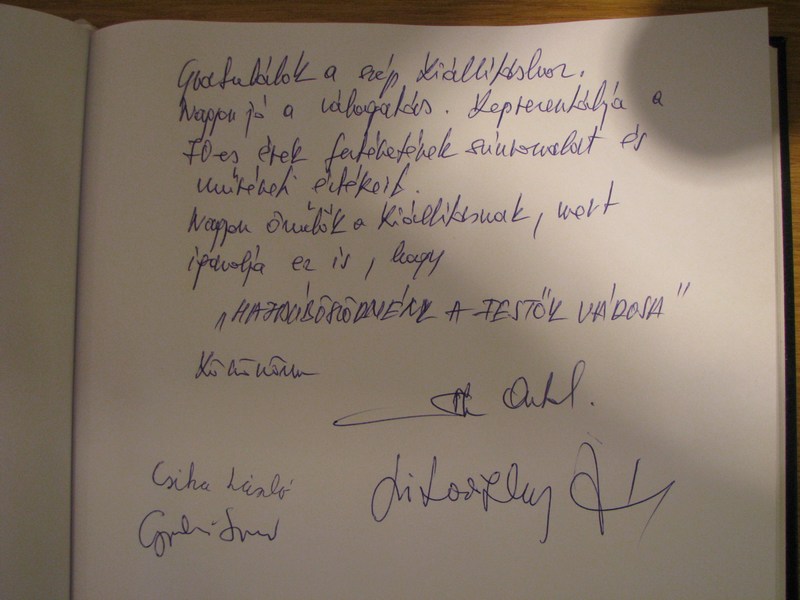 Gratulálok a szép kiállításhoz.
Nagyon jó a válogatás. Reprezentálja a
70-es évek festészetének színvonalát és
művészeti értékeit.
Nagyon örülök a kiállításnak, mert
igazolja ez is, hogy
„HAJDÚBÖSZÖRMÉNY A FESTŐK VÁROSA"
Köszönöm
Antal.
Csiha László